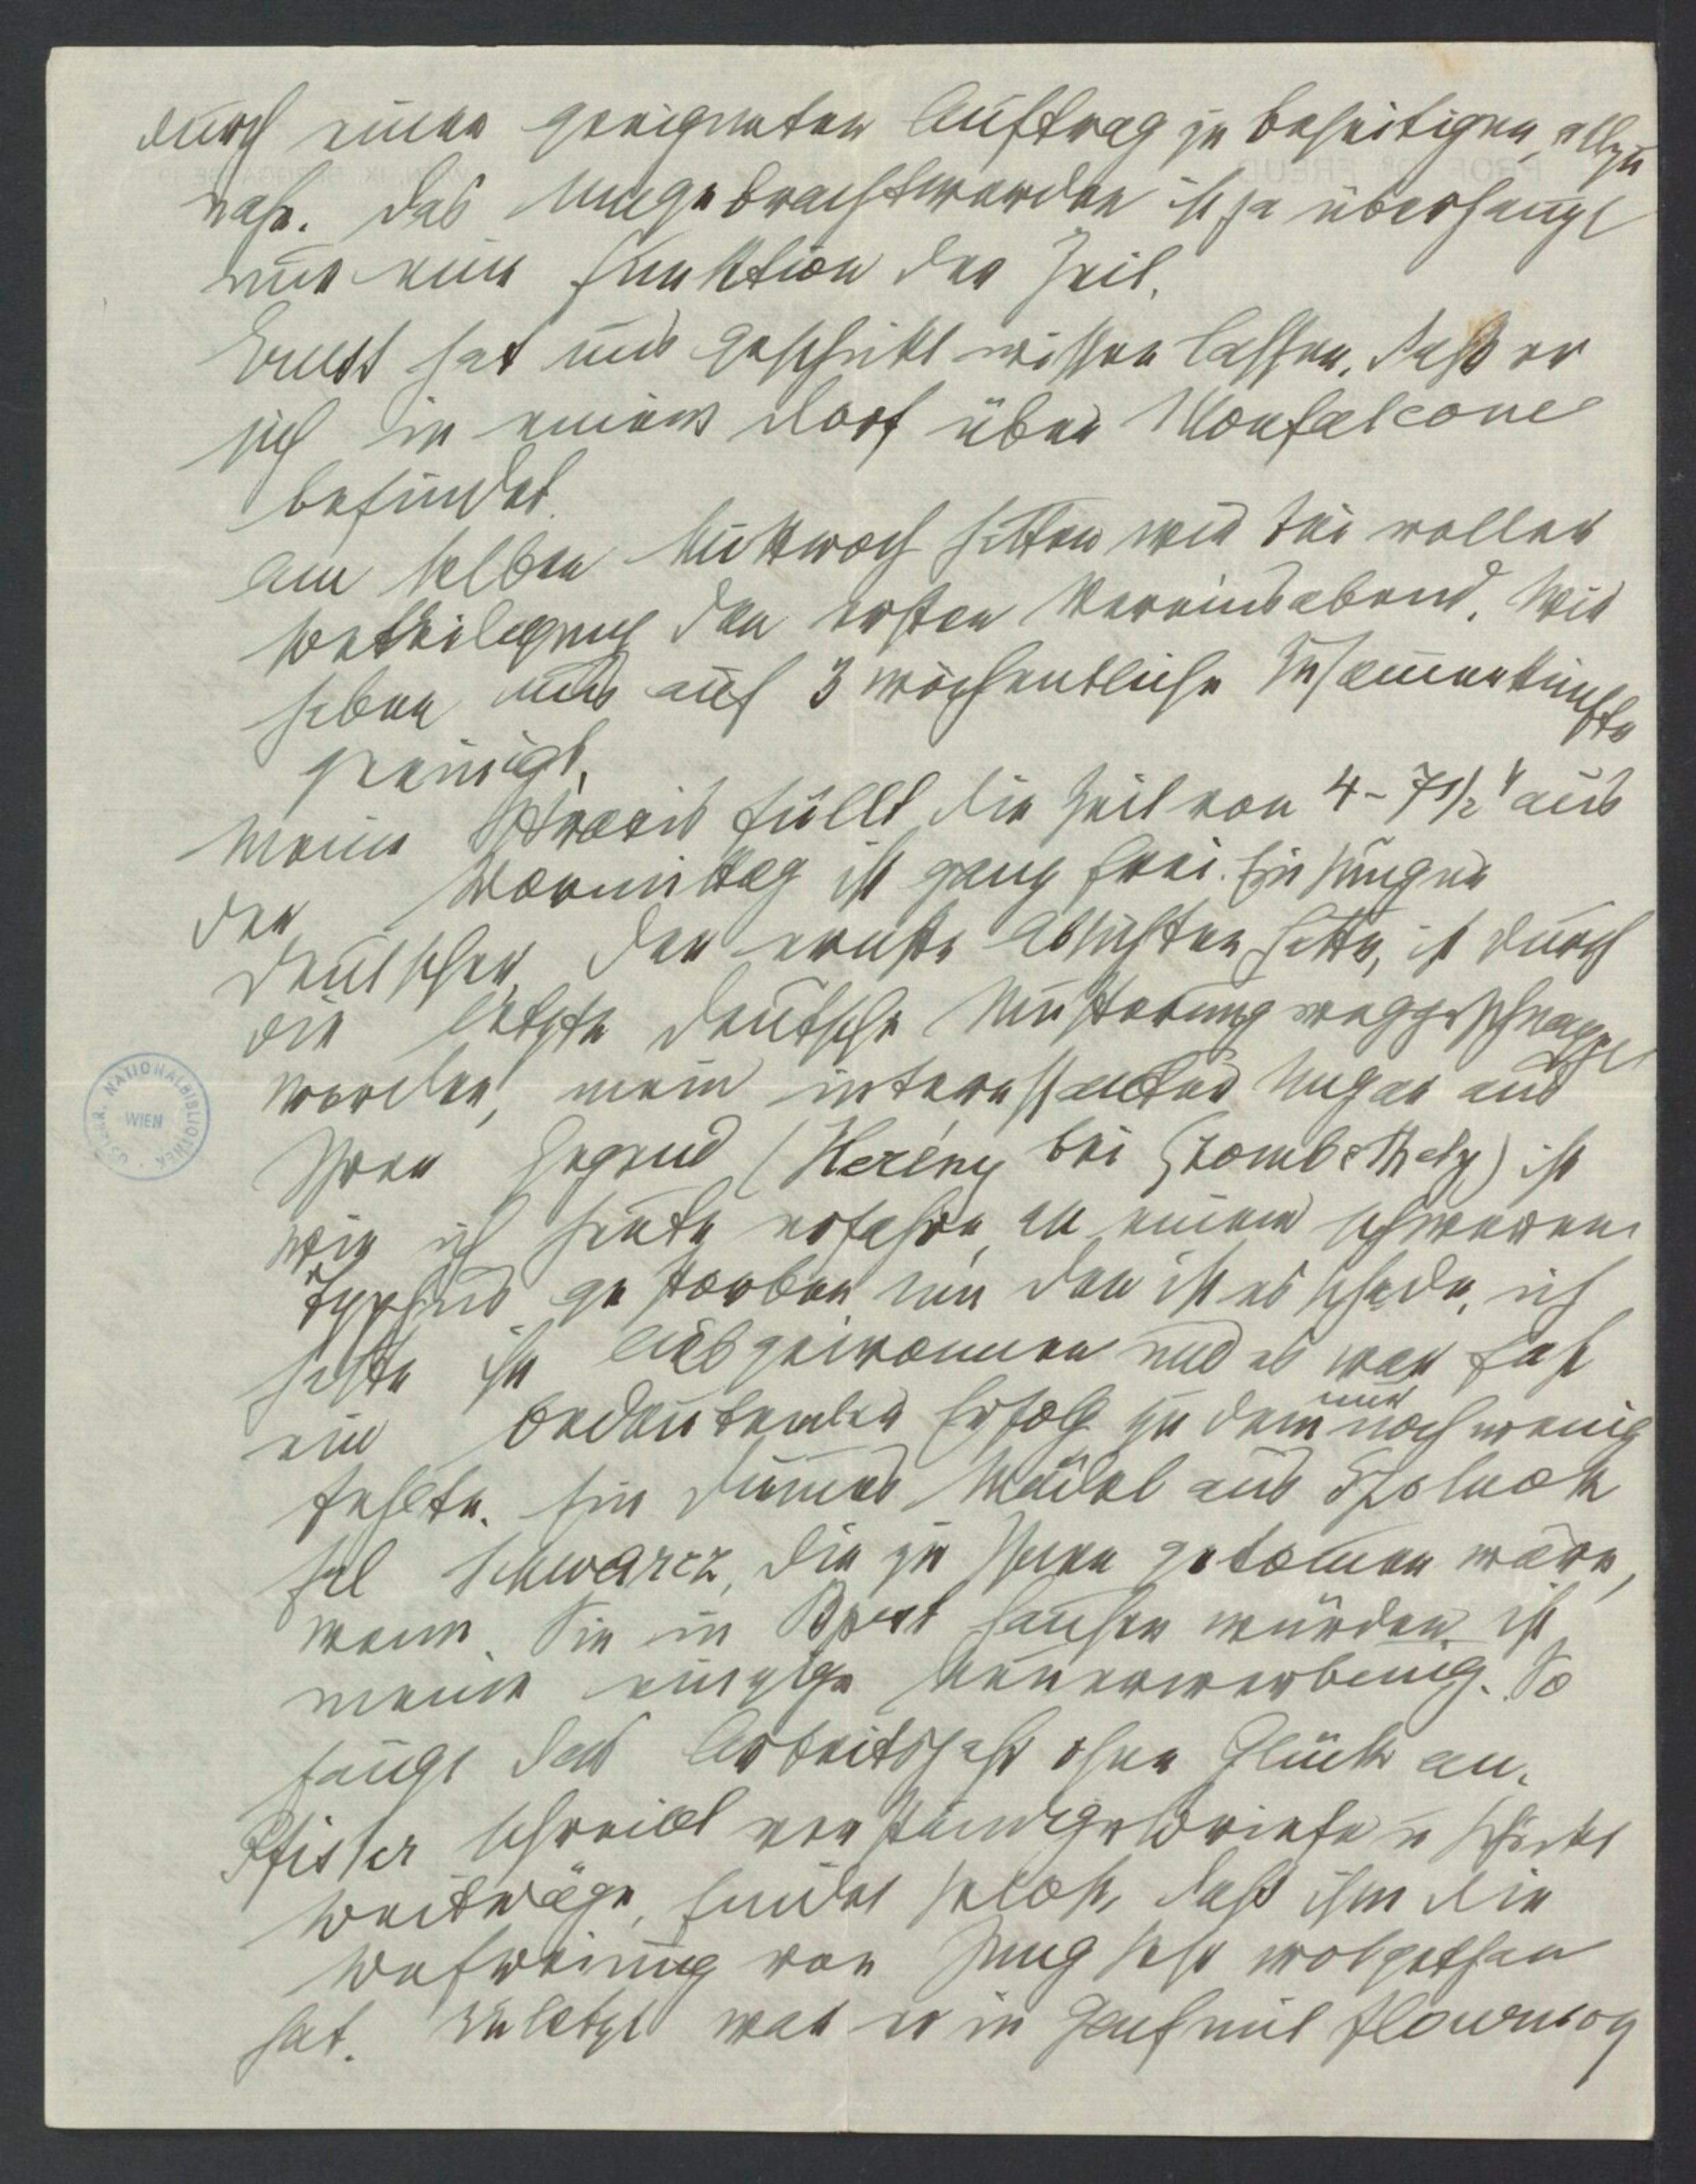 durch einen geeigneten Auftrag zu beseitigen, allzu
nahe. Das Umgebrachtwerden ist ja überhaupt
nur eine Funktion der Zeit.
Ernst hat uns geschickt wissen lassen, daß er
sich in einem Dorf über Monfalcone
befindet.
Am selben Mittwoch hatten wir bei voller
Beteiligung den ersten Vereinsabend. Wir
haben uns auf 3 wöchentliche Zusammenkünfte
geeinigt.
Meine Praxis füllt die Zeit von 4 - 7 1/2 h aus
der Vormittag ist ganz frei. Ein junger
Deutscher, der ernste Absichten hatte, ist durch
die letzte deutsche Musterung weggeschnappt
worden, mein interessanter Ungar aus
Ihrer Gegend (Herény bei Szombathely) ist
wie ich heute erfahre, an einem schweren
Typhus gestorben um den ist es schade, ich
hatte ihn liebgewonnen und es war fast
ein bedeutender Erfolg zu dem nur noch wenig
fehlte. Ein dummes Mädel aus Szolnok
Frl Schwarcz, die zu Ihnen gekommen wäre,
wenn Sie in Bpest hausen würden, ist
meine einzige Neuerwerbung. So
fängt das Arbeitsjahr ohne Glück an.
Pfister schreibt verständige Briefe u schickt
Beiträge, findet selbst, daß ihm die
Befreiung von Jung sehr wolgethan
hat. Zuletzt war er in Genf mit Flournoy
ÖSTERR. NATIONALBIBLIOTHEK
WIEN